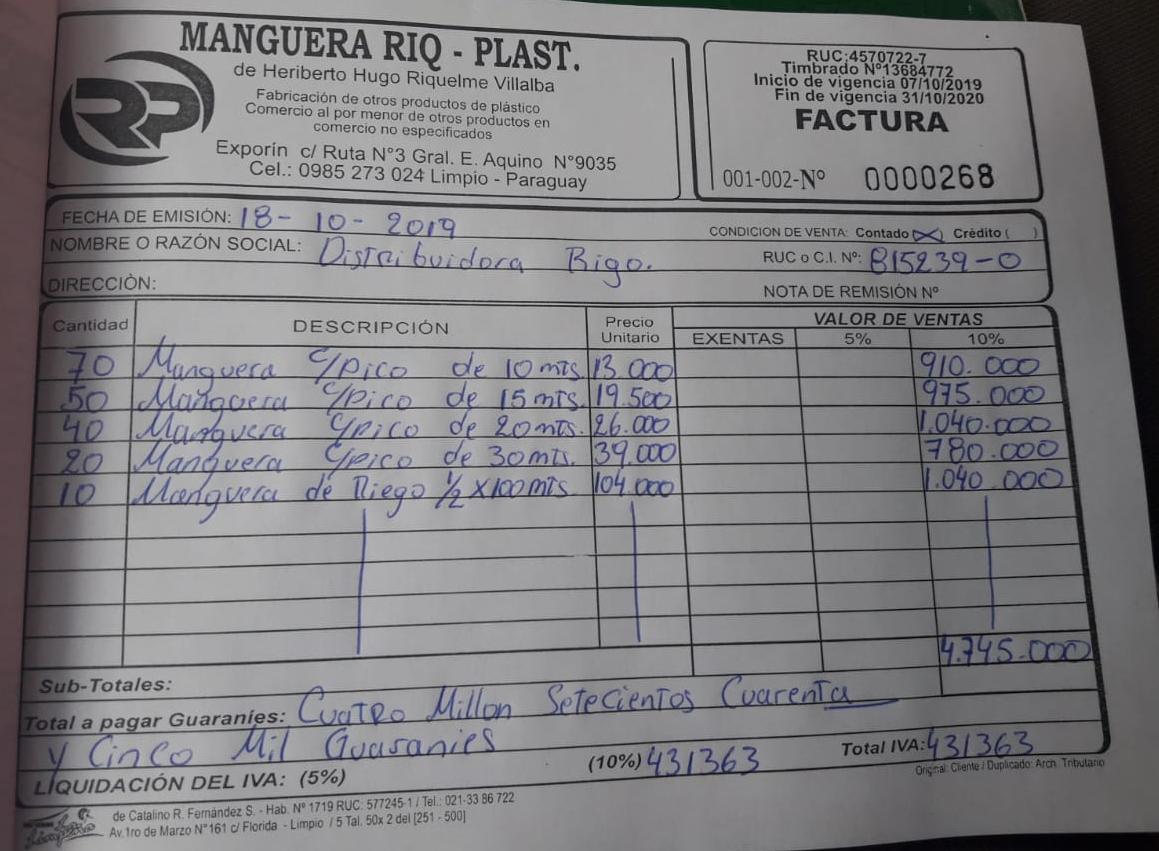 MANGUERA RIQ - PLAST.
de Heriberto Hugo Riquelme Villalba
Fabricación de otros productos de plástico
Comercio al por menor de otros productos en
comercio no especificados
Exporín c/ Ruta N°3 Gral. E. Aquino N°9035
Cel.: 0985 273 024 Limpio - Paraguay
RP
RUC:4570722-7
Timbrado N°13684772
Inicio de vigencia 07/10/2019
Fin de vigencia 31/10/2020
FACTURA
001-002-N° 0000268
FECHA DE EMISIÓN: 18- 10- 2019
CONDICION DE VENTA: Contado (X) Crèdito ( )
NOMBRE O RAZÓN SOCIAL: Distribuidora Rigo.
RUC o C.I. Nº: 815239-0
DIRECCIÒN:
NOTA DE REMISIÓN Nº
Cantidad DESCRIPCIÓN Precio Unitario VALOR DE VENTAS
EXENTAS 5% 10%
70 Manguera C/pico de 10 mts 13.000 910.000
50 Manguera C/pico de 15 mts. 19.500 975.000
40 Manguera C/pico de 20 mts. 26.000 1.040.000
20 Manguera C/pico de 30 mts. 39.000 780.000
10 Manguera de Riego 1/2 X 100 mts 104.000 1.040.000
4.745.000
Sub-Totales:
Total a pagar Guaraníes: Cuatro Millon Setecientos Cuarenta
y Cinco Mil Guaranies
LIQUIDACIÓN DEL IVA: (5%) (10%) 431363 Total IVA: 431363
Original: Cliente / Duplicado: Arch. Tributario
de Catalino R. Fernández S. - Hab. Nº 1719 RUC: 577245-1 / Tel.: 021-33 86 722
Av.1ro de Marzo N°161 c/ Florida - Limpio / 5 Tal. 50x 2 del [251 - 500]